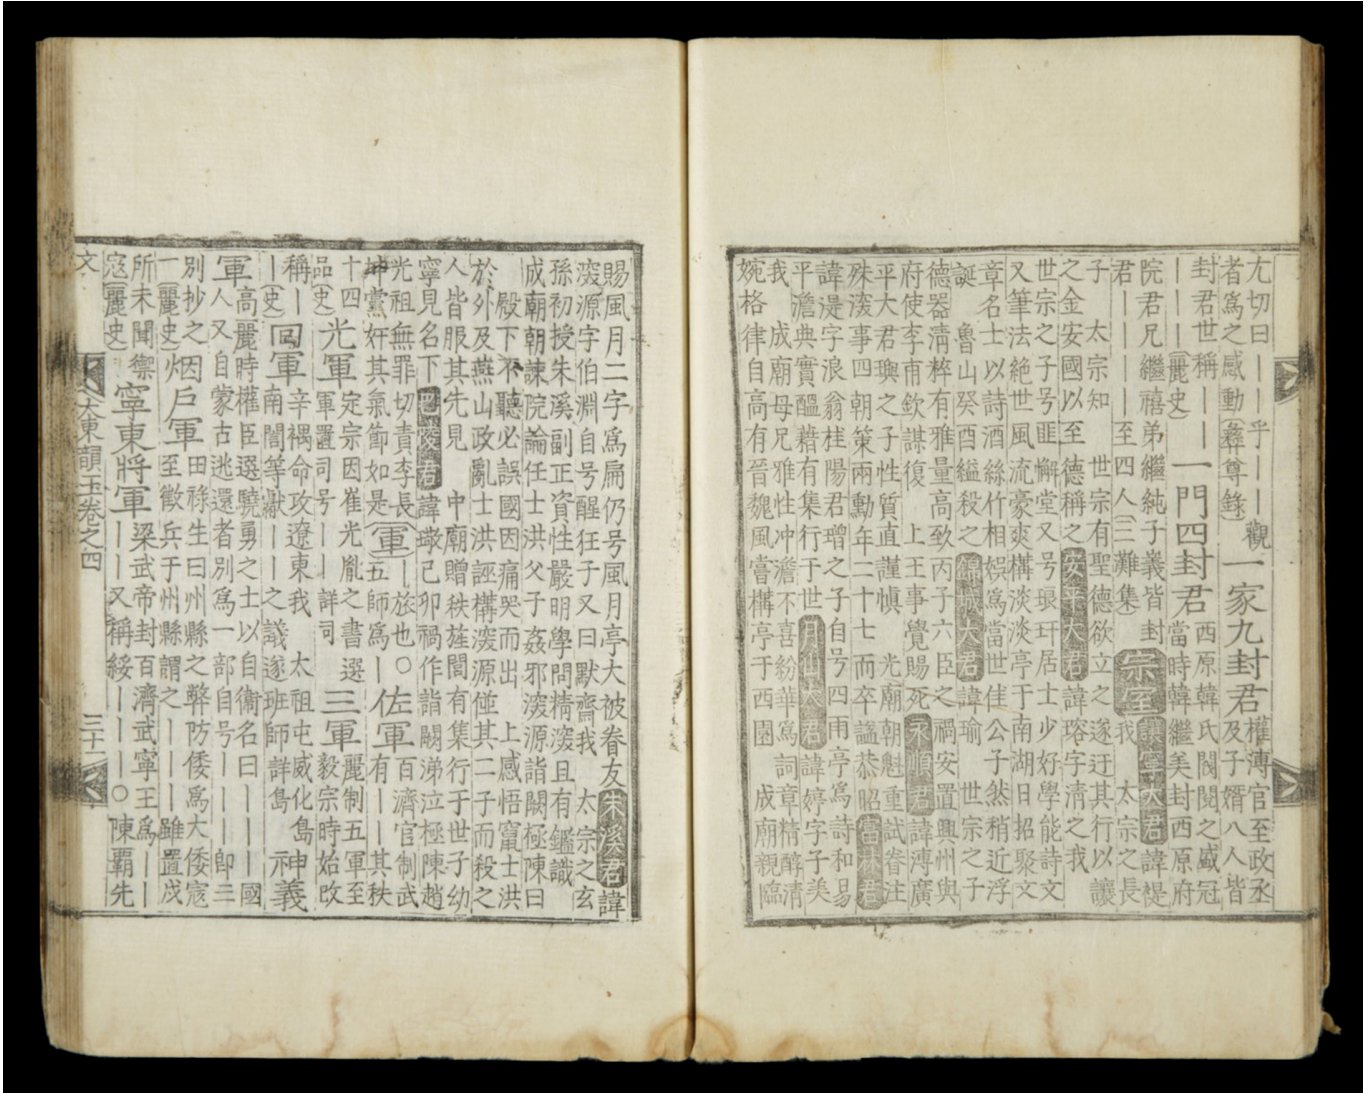 尤切曰｜｜乎｜｜｜觀
者爲之感動(彝尊錄)
一家九封君
權溥官至政丞
及子婿八人皆
封君世稱｜
｜｜｜(麗史)
一門四封君
西原韓氏閥閱之盛冠
當時韓繼美封西原府
院君兄繼禧弟繼純子義皆封
君｜｜｜｜至四人(三灘集)
宗室
讓寧大君 諱禔
我 太宗之長
子 太宗知 世宗有聖德欲立之遂迂其行以讓
之金安國以至德稱之 安平大君 諱瑢字清之我
世宗之子号匪懈堂又号琅玕居士少好學能詩文
又筆法絶世風流豪爽搆淡淡亭于南湖日招聚文
章名士以詩酒絲竹相娛爲當世佳公子然稍近浮
誕 魯山癸酉縊殺之 錦城大君 諱瑜 世宗之子
德器清粹有雅量高致丙子六臣之禍安置興州與
府使李甫欽謀復 上王事覺賜死 永順君 諱溥廣
平大君璵之子性質直謹愼 光廟朝魁重試眷注
殊深事四朝策兩勳年二十七而卒謚恭昭 富林君
諱湜字浪翁桂陽君璔之子自号四雨亭爲詩和易
平澹典實醞藉有集行于世 月山大君 諱婷字子美
我 成廟母兄雅性冲澹不喜紛華爲詞章精醇清
婉格律自高有晉魏風嘗構亭于西園 成廟親臨
賜風月二字爲扁仍号風月亭大被眷友 朱溪君 諱
深源字伯淵自号醒狂子又曰默齋我 太宗之玄
孫初授朱溪副正資性嚴明學問精深且有鑑識
成廟朝諫院論任士洪父子姦邪深源詣闕極陳曰
殿下不聽必誤國因痛哭而出 上感悟竄士洪
於外及燕山政亂士洪誣構深源並其二子而殺之
人皆服其先見 中廟贈秩旌閭有集行于世子幼
寧見名下 諱璥己卯禍作詣闕涕泣極陳趙
光祖無罪切責李長
坤黨奸其氣節如是
(軍)
｜旅也○
五師爲｜
佐軍
百濟官制武
有｜｜其秩
十四
品(史)
光軍
定宗因崔光胤之書選
軍置司号｜｜詳司
三軍
麗制五軍至
毅宗時始改
稱｜
｜(史)
回軍
辛禑命攻遼東我 太祖屯威化島
南誾等獻｜｜之議遂班師詳島
神義
軍
高麗時權臣選驍勇之士以自衛名曰｜｜｜國
人又自蒙古逃還者別爲一部自号｜｜｜卽三
別抄之
一(麗史)
烟戶軍
田祿生曰州縣之弊防倭爲大倭寇
至徵兵于州縣謂之｜｜｜雖置戍
所未聞禦
寇(麗史)
寧東將軍
梁武帝封百濟武寧王爲｜｜
｜｜又稱綏｜｜｜○陳覇先
文
大東韻玉卷之四
三十一